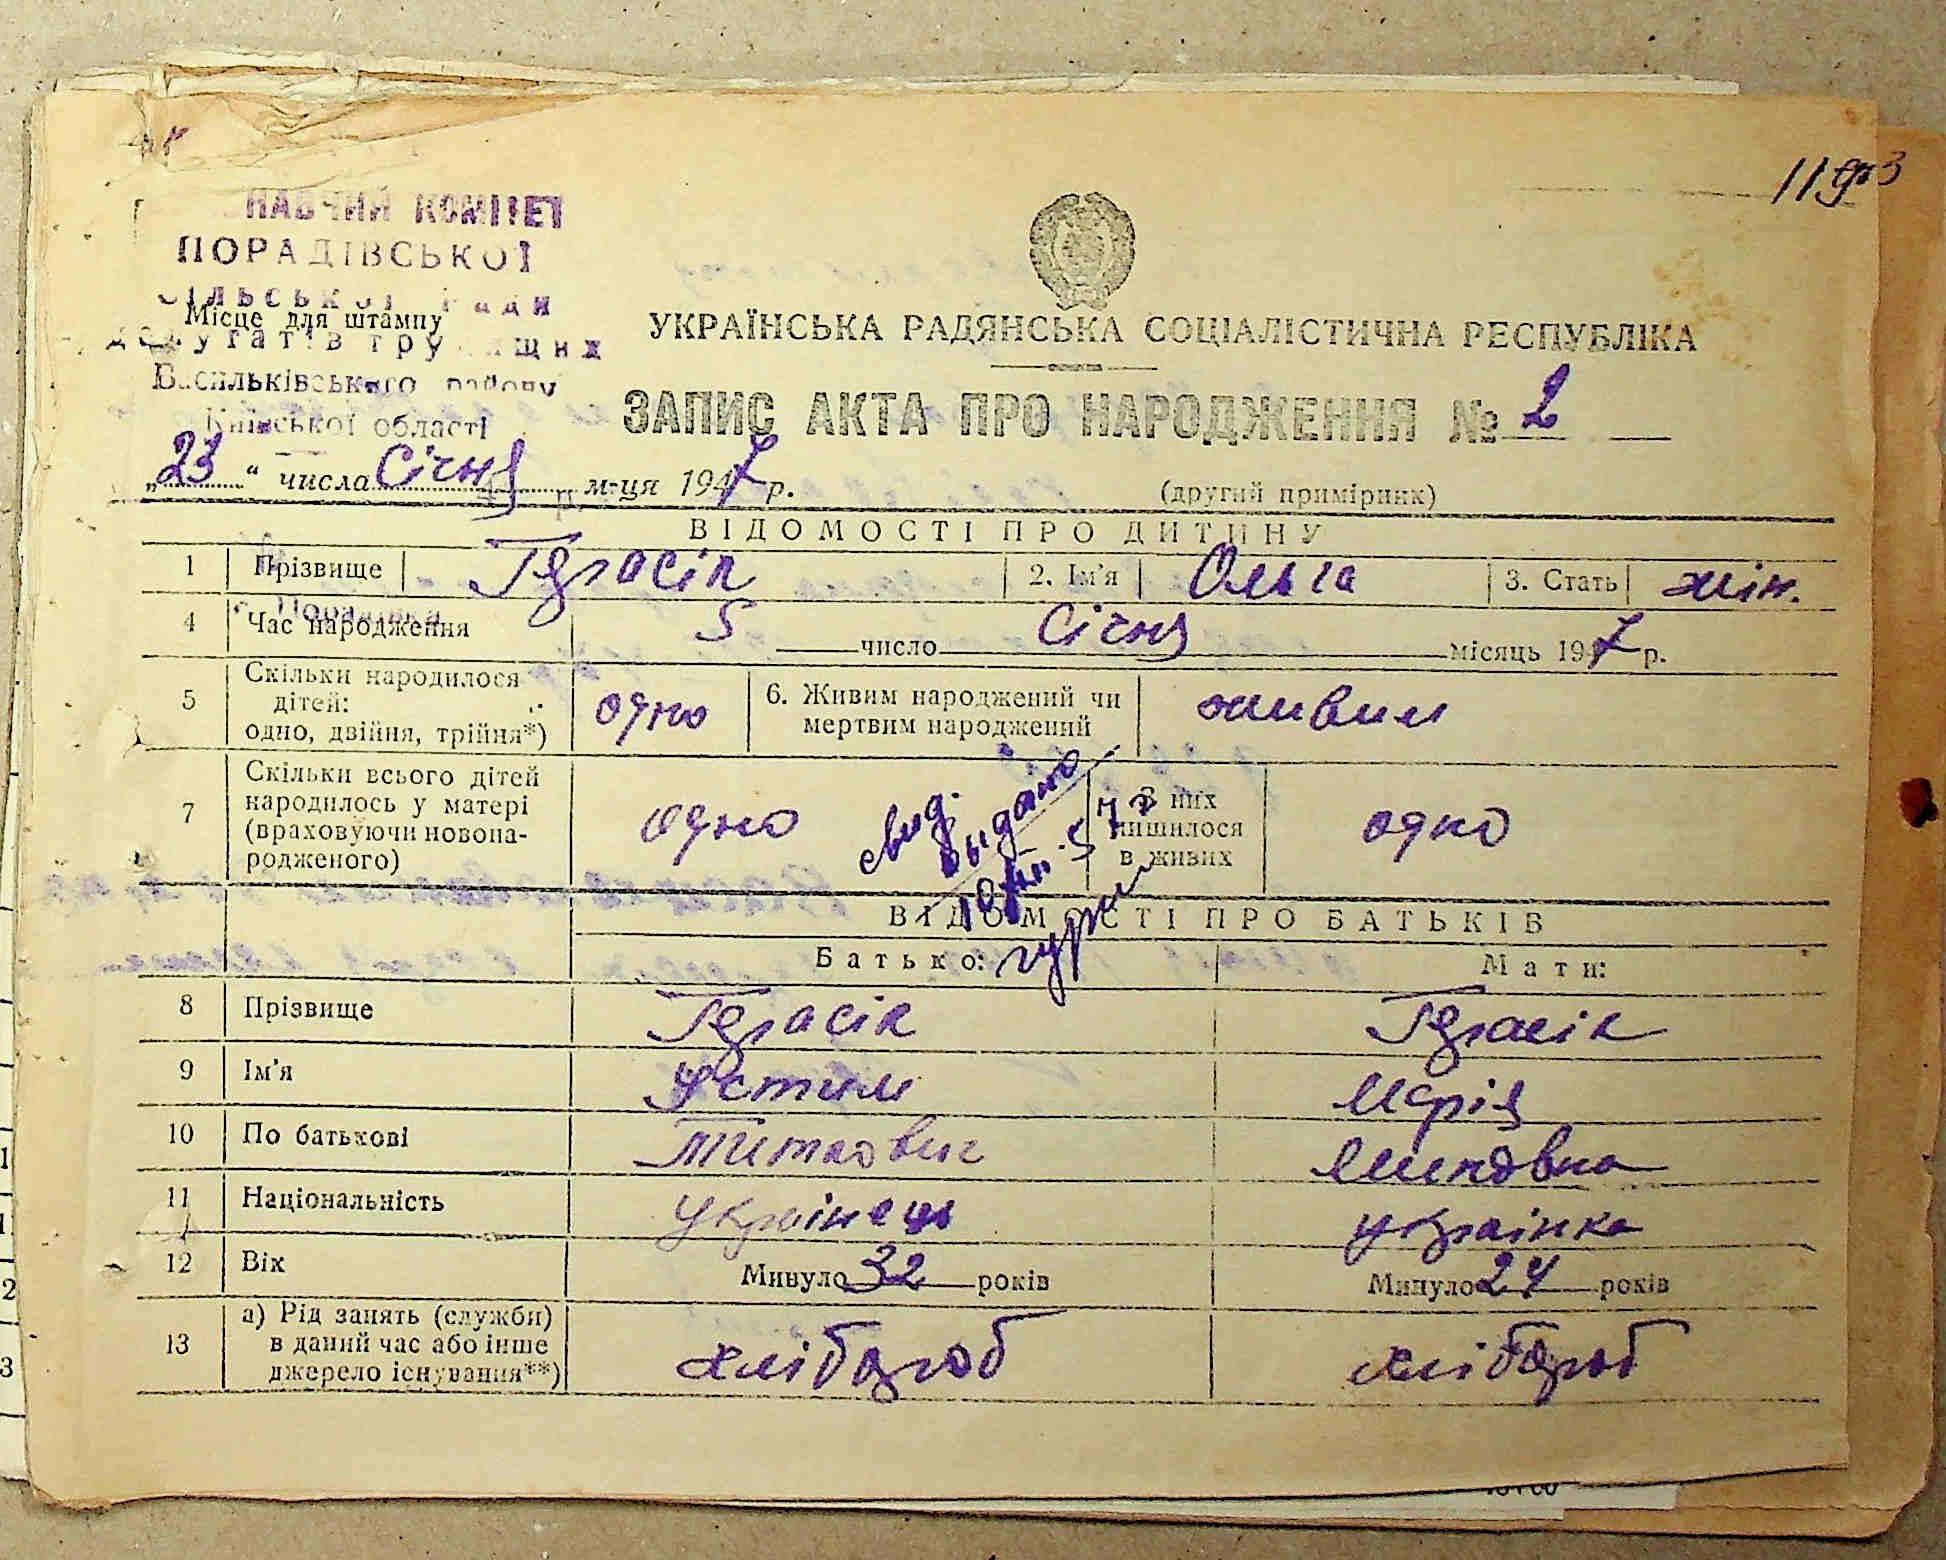 НАВЧИЙ КОМІТЕТ
ПОРАДІВСЬКОЇ
СІЛЬСЬКОЇ РАДИ
Місце для штампу
депутатів трудящих
Васильківського району
Київської області
УКРАЇНСЬКА РАДЯНСЬКА СОЦІАЛІСТИЧНА РЕСПУБЛІКА
ЗАПИС АКТА ПРО НАРОДЖЕННЯ № 2
„23“ числа Січня м-ця 1947 р.
(другий примірник)
ВІДОМОСТІ ПРО ДИТИНУ
1 Прізвище Герасік 2. Ім'я Ольга 3. Стать жін.
с. Порадівка
4 Час народження 5 число Січня місяць 1947 р.
5 Скільки народилося дітей: одно, двійня, трійня*) одно 6. Живим народжений чи мертвим народжений живим
7 Скільки всього дітей народилось у матері (враховуючи новонародженого) одно З них лишилося в живих одно
свид. выдано
ВІДОМОСТІ ПРО БАТЬКІВ
Батько: Мати:
8 Прізвище Герасік Герасік
9 Ім'я Устим Марія
10 По батькові Титкович
11 Національність українець українка
12 Вік Минуло 32 років Минуло 24 років
13 а) Рід занять (служби) в даний час або інше джерело існування**) хлібороб хлібороб